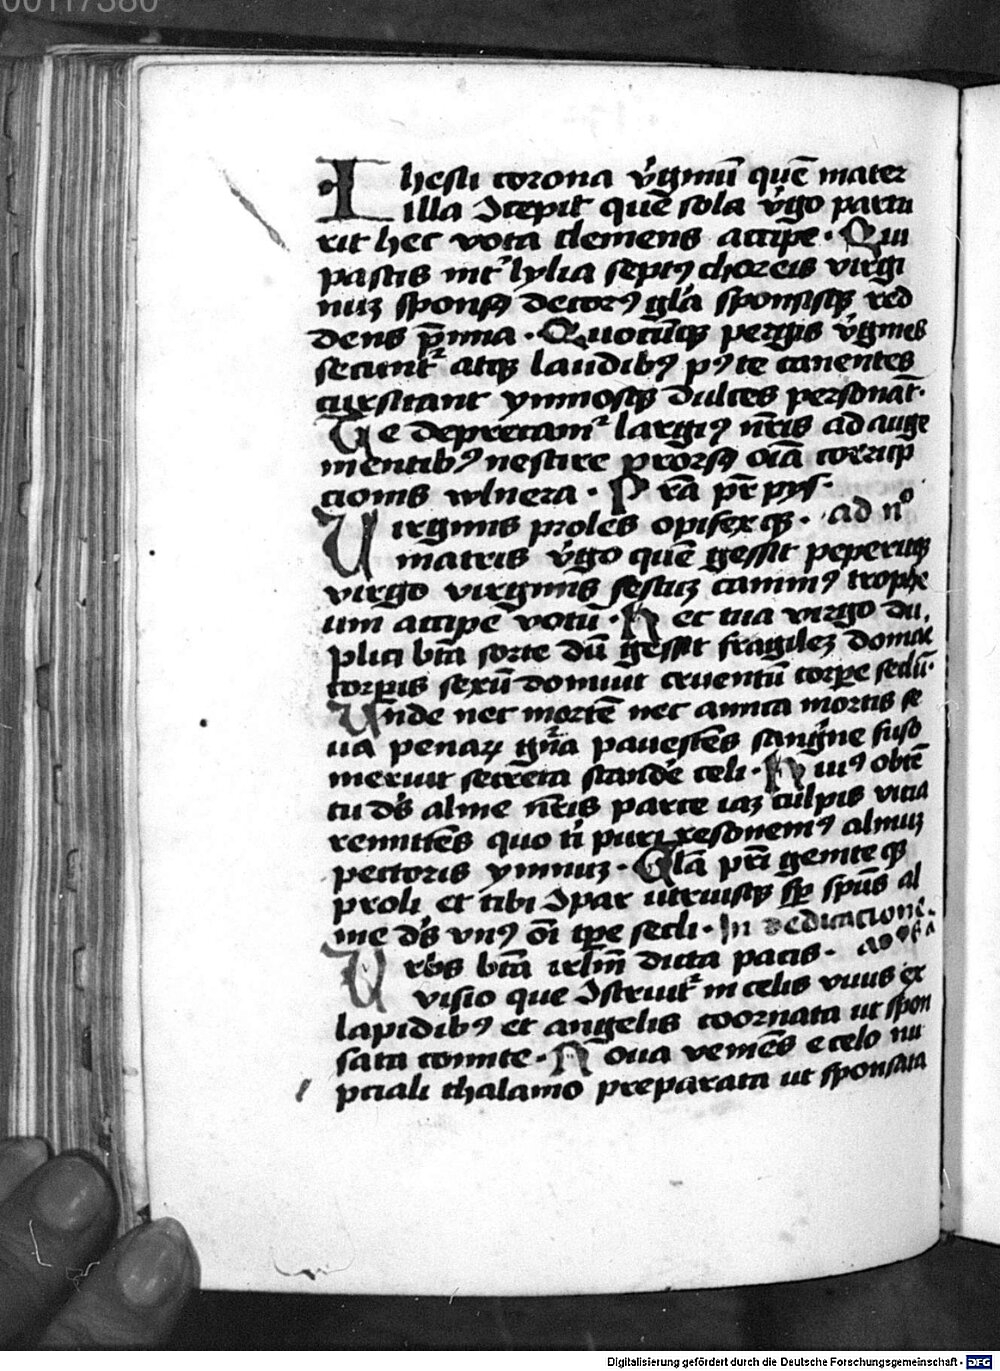 00117380
Ihesu corona v̓ginū quē mater
illa ɔcepit quē sola v̓go partu
rit hec vota clemens accipe · Qui
pascis int̓ lylia septꝰ choreis virgi
nuꝫ sponsꝰ decorꝰ gl̄a sponsisqꝫ red
dens p̄mia · Quocūqꝫ pergis v̓gines
secunt᷑ atqꝫ laudibꝰ pꝰ te canentes
cursitant ymnosqꝫ dulces personāt ·
Te deprecam᷑ largiꝰ nr̄is ad auge
mentibꝰ nescire prorsꝰ oīa corrup
cionis wlnera · P ra p̄r pyss ·
Virginis proles opifexqꝫ · ad nᵒ
matris v̓go quē gessit peperitqꝫ
virgo virginis festuꝫ canimꝰ trophe
um accipe votū · Hec tua virgo du
plici bt̄a sorte dū gessit fragileꝫ domaē
corꝑis sexū domuit cruentū corꝑe seclū ·
Unde nec mortē nec amica mortis se
va penaꝝ gn̄̓a pavescēs sangīne fuso
meruit secreta scandē celi · Huiꝰ obtē
tu dꝰs alme nr̄is parce iaꝫ culpis vicia
remittēs quo tī puri resonemꝰ almuꝫ
pectoris ymnuꝫ · Gl̄a pr̄i geniteqꝫ
proli et tibi ɔpar utriusqꝫ sp̄ sp̄us al
me dꝰs vnꝰ oī tꝑe secli · In dedicacione
Urbs bt̄a irl̄m dicta pacis ·
visio que ɔstruit᷑ in celis vivus ex
lapidibꝰ et angelis coornata ut spon
sata comite · Noua veniēs e celo nu
pciali thalamo preparata ut sponsata
Digitalisierung gefördert durch die Deutsche Forschungsgemeinschaft - DFG